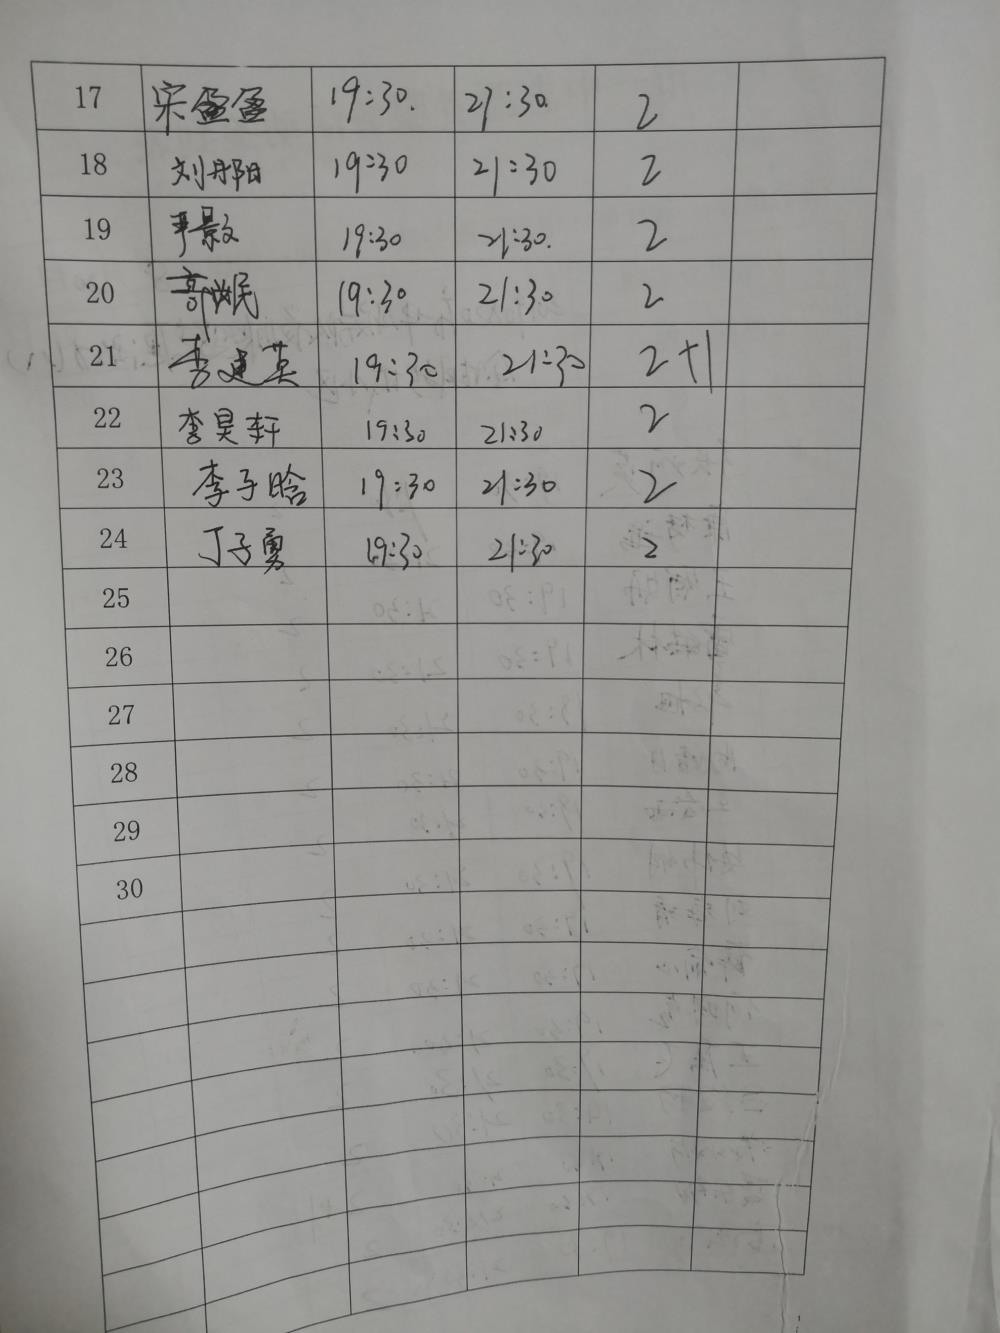 17 宋盈盈 19:30. 21:30. 2
18 刘丹阳 19:30 21:30 2
19 19:30 21:30. 2
20 19:30 21:30 2
21 李建英 19:30 21:30 2+1
22 李昊轩 19:30 21:30 2
23 李子晗 19:30 21:30 2
24 丁子勇 19:30 21:30 2
25
26
27
28
29
30